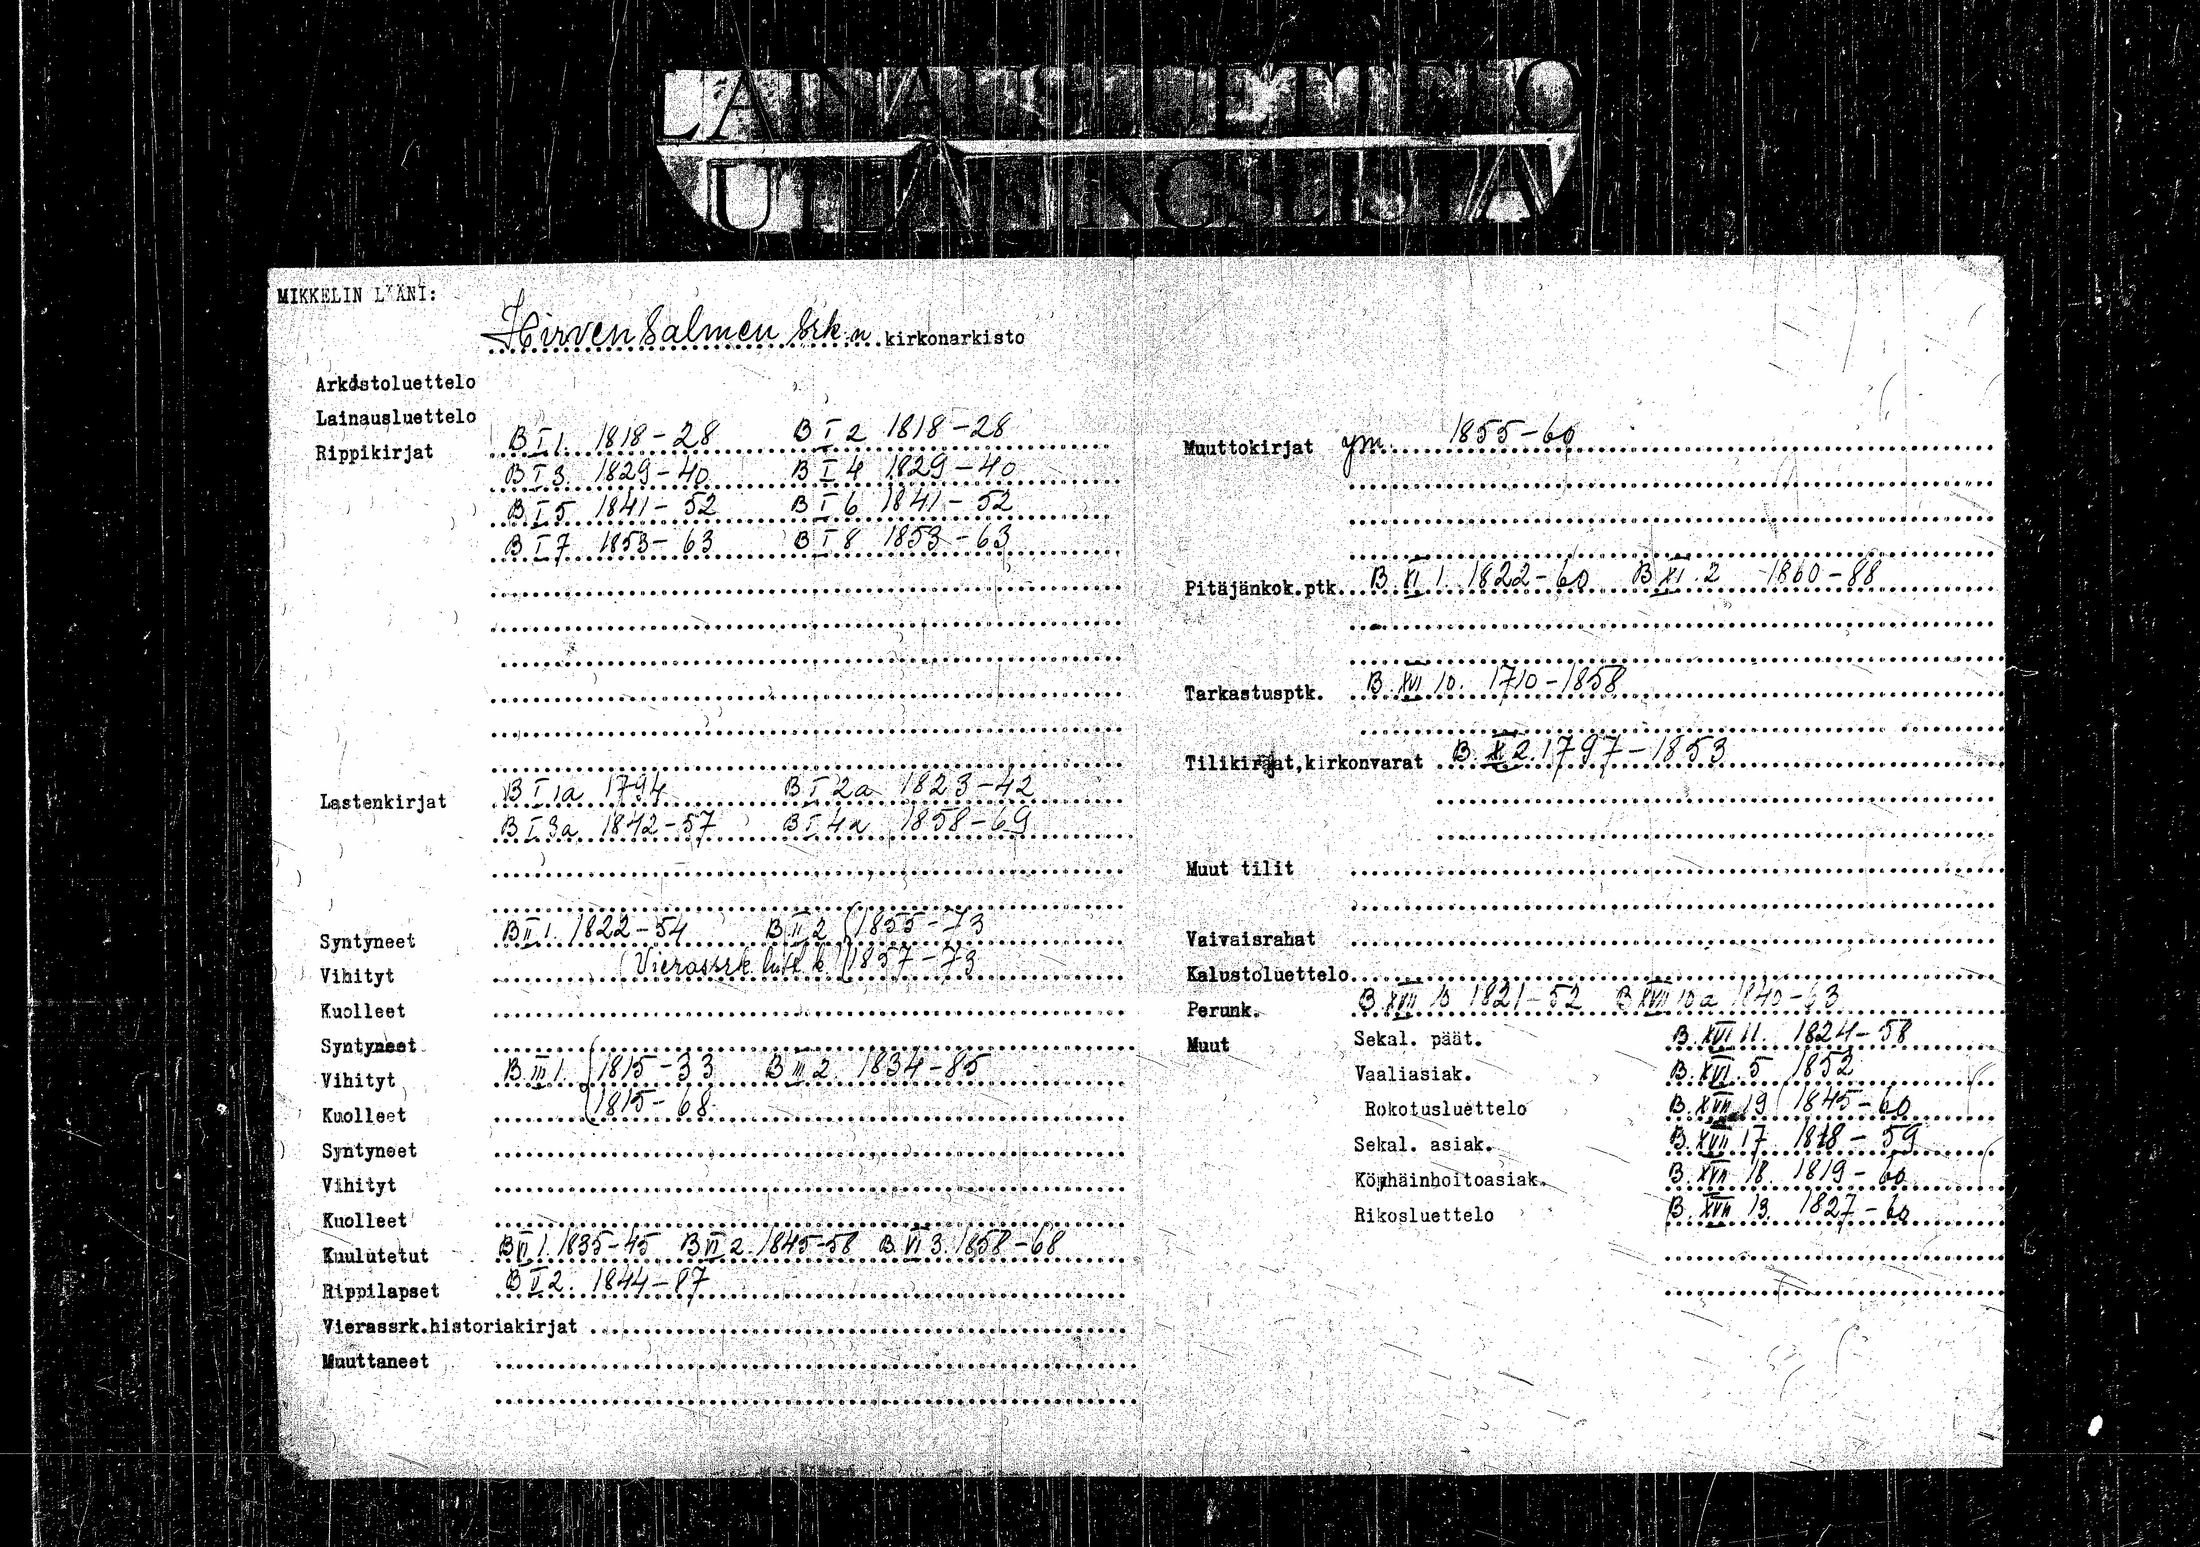 LAINAUSLUETTELO
UTLÅNINGSLISTA
MIKKELIN LÄÄNI:
Hirvensalmen Srk:n kirkonarkisto
Arkistoluettelo
Lainausluettelo
Rippikirjat B I 1. 1818-28 B I 2 1818-28
B I 3. 1829-40 B I 4 1829-40
B I 5 1841-52 B I 6 1841-52
B I 7 1853-63 B I 8 1853-63
Lastenkirjat B I 1a 1794 B I 2a 1823-42
B I 3a 1842-57 B I 4a 1858-69
Syntyneet B II 1. 1822-54 B II 2 (1855-73
Vihityt (Vierassrk. luett. k.) (1857-73
Kuolleet
Syntyneet
Vihityt B III 1. (1815-33 B III 2. 1834-85
Kuolleet (1815-68
Syntyneet
Vihityt
Kuolleet
Kuulutetut B VI 1. 1835-45 B VI 2. 1845-58 B VI 3. 1858-68
Rippilapset B V 2. 1844-87
Vierassrk.historiakirjat
Muuttaneet
Muuttokirjat ym. 1855-60
Pitäjänkok.ptk. B XI 1. 1822-60 B XI. 2 1860-88
Tarkastusptk. B XVI 10. 1710-1858
Tilikirjat,kirkonvarat B. X 2. 1797-1853
Muut tilit
Vaivaisrahat
Kalustoluettelo
Perunk. B XVII 10 1821-52 B XVII 10a 1840-63
Muut Sekal. päät. B. XVI 11. 1824-58
Vaaliasiak. B. XVI. 5 1852
Rokotusluettelo B. XVII 19 1845-60
Sekal. asiak. B. XVII 17 1818-59
Köyhäinhoitoasiak. B. XVII 18. 1819-60
Rikosluettelo B. XVII 13. 1827-60